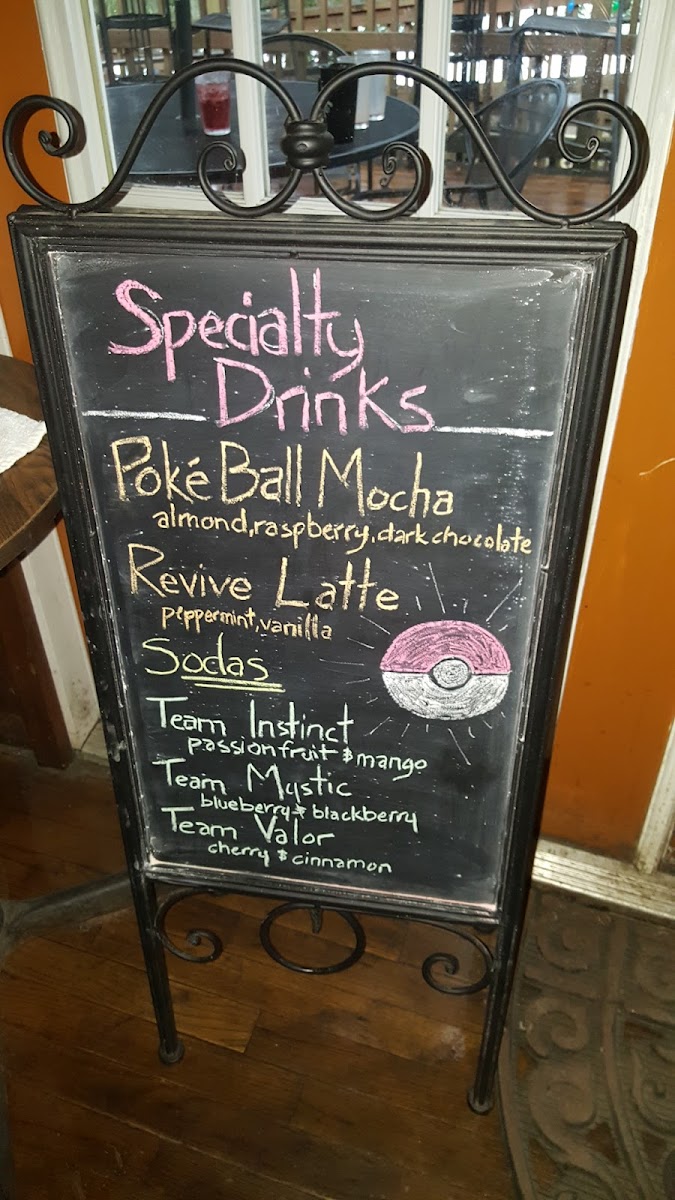 Specialty
Drinks
Poké Ball Mocha
almond, raspberry, dark chocolate
Revive Latte
peppermint, vanilla
Sodas
Team Instinct
passionfruit & mango
Team Mystic
blueberry & blackberry
Team Valor
cherry & cinnamon